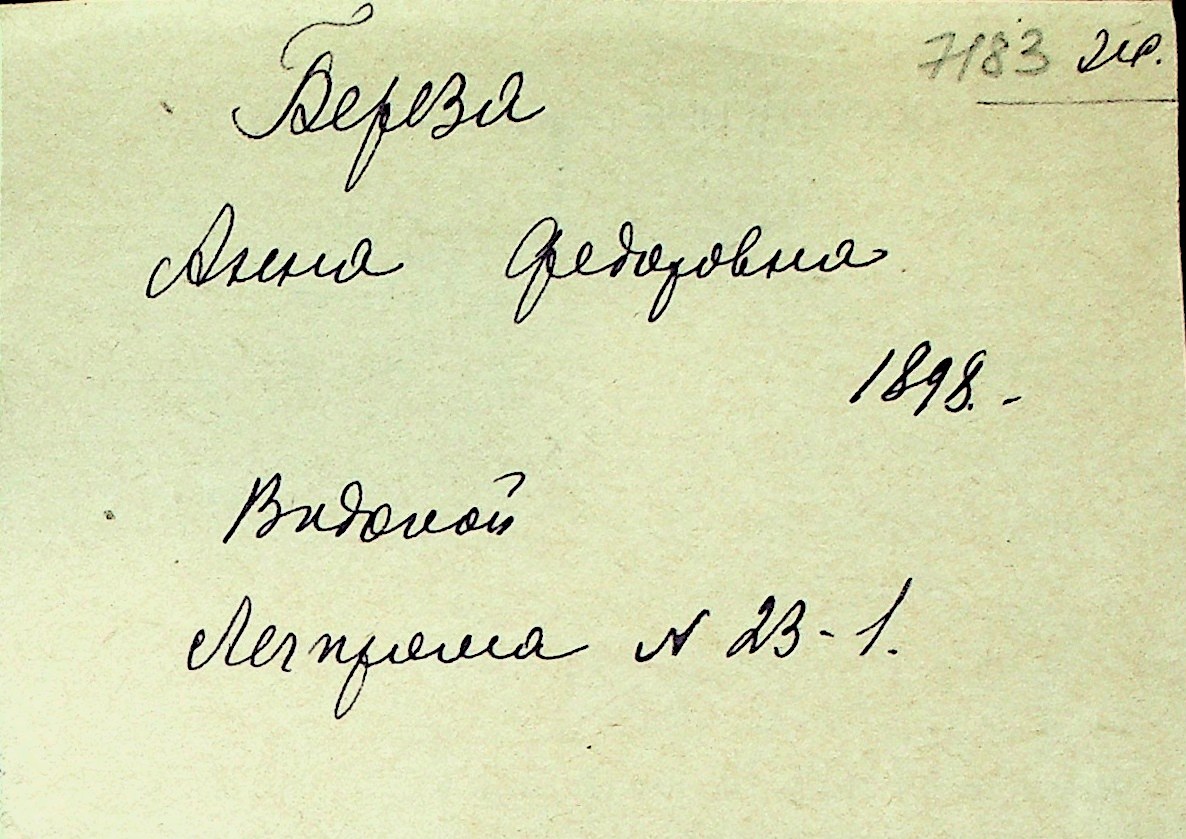 7183 2гр.
Береза
Анна Федоровна
1898.-
Видокой
Легпрома N 23-1.